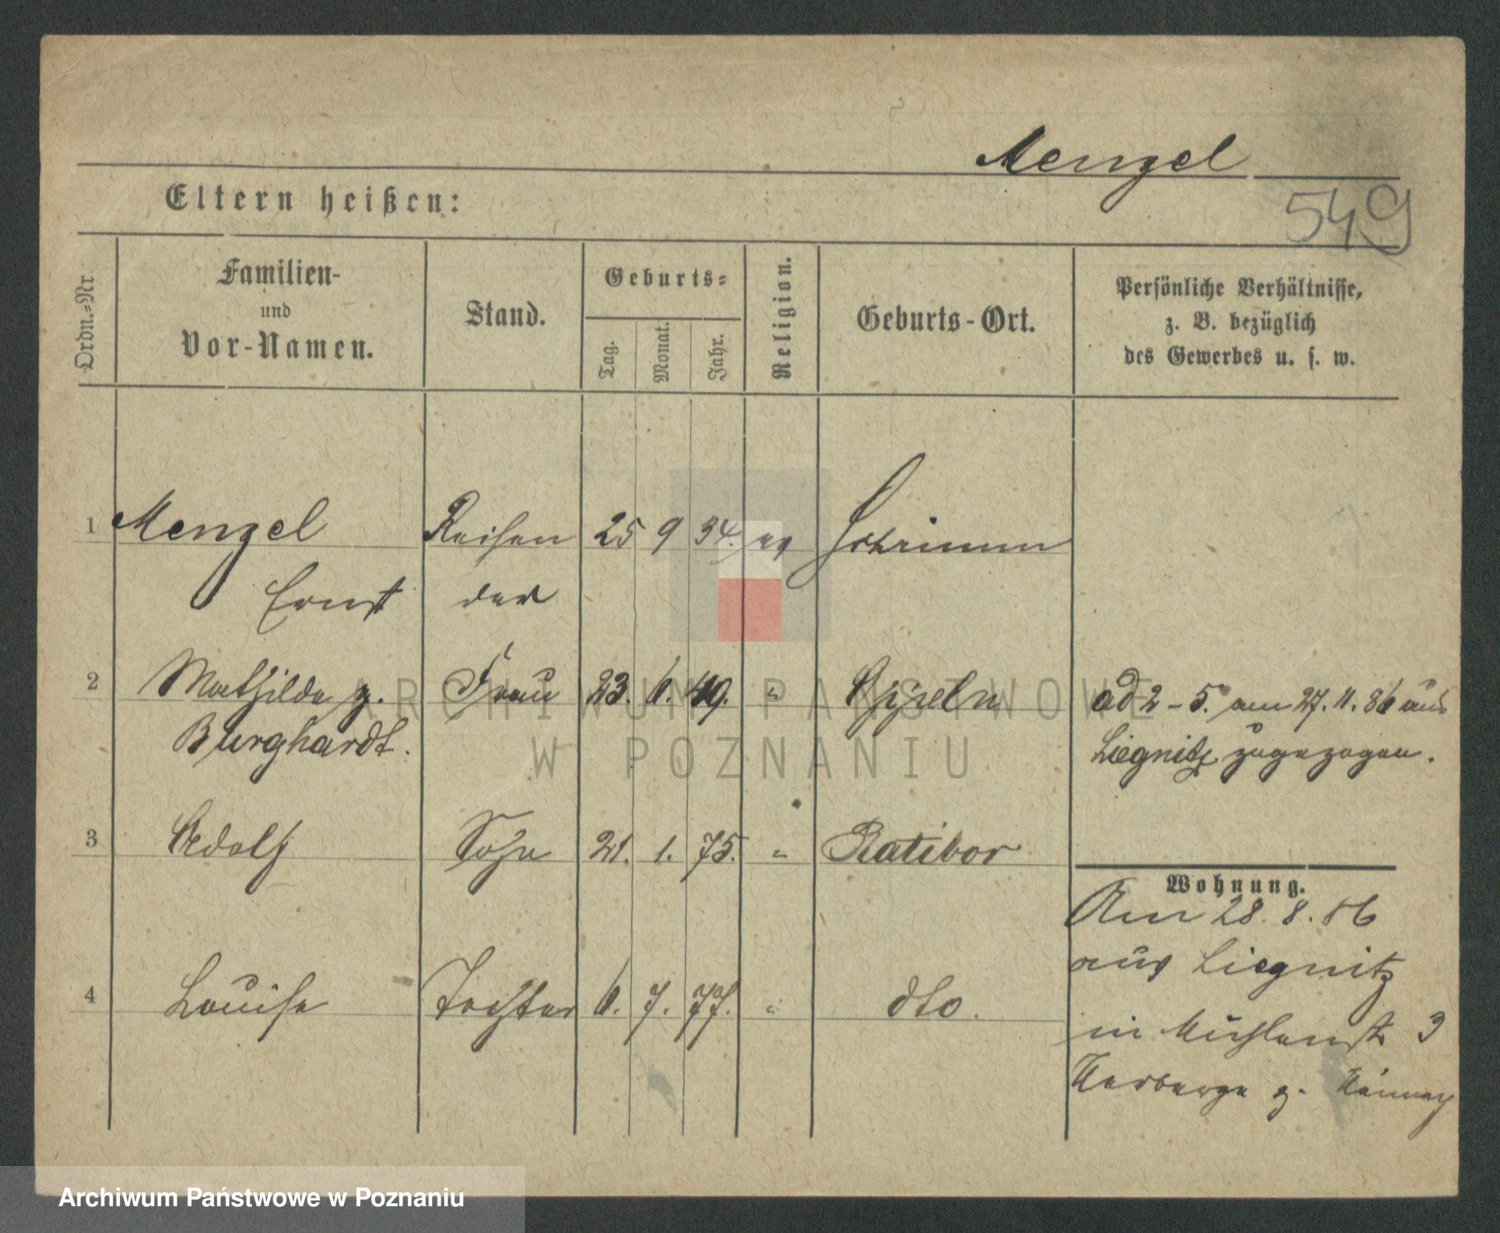 Mengel
549
Eltern heißen:
Ordn.-Nr
Familien-
und
Vor-Namen.
Stand.
Geburts-
Tag.
Monat.
Jahr.
Religion.
Geburts-Ort.
Persönliche Verhältnisse,
z. B. bezüglich
des Gewerbes u. s. w.
1 Mengel Reisen 25 9 34. ev Schrimm
Ernst der
2 Mathilde g. Frau 23. 6. 49. " Oppeln
Burghardt.
ad 2-5. am 27. 11. 86 aus
Liegnitz zugezogen.
3 Adolf Sohn 21. 1. 75. " Ratibor
4 Louise Tochter 6. 7. 77. " dto.
Wohnung.
Am 28. 8. 86
aus Liegnitz
in Mühlenstr 3
Herberge z.
ARCHIWUM PAŃSTWOWE
W POZNANIU
Archiwum Państwowe w Poznaniu